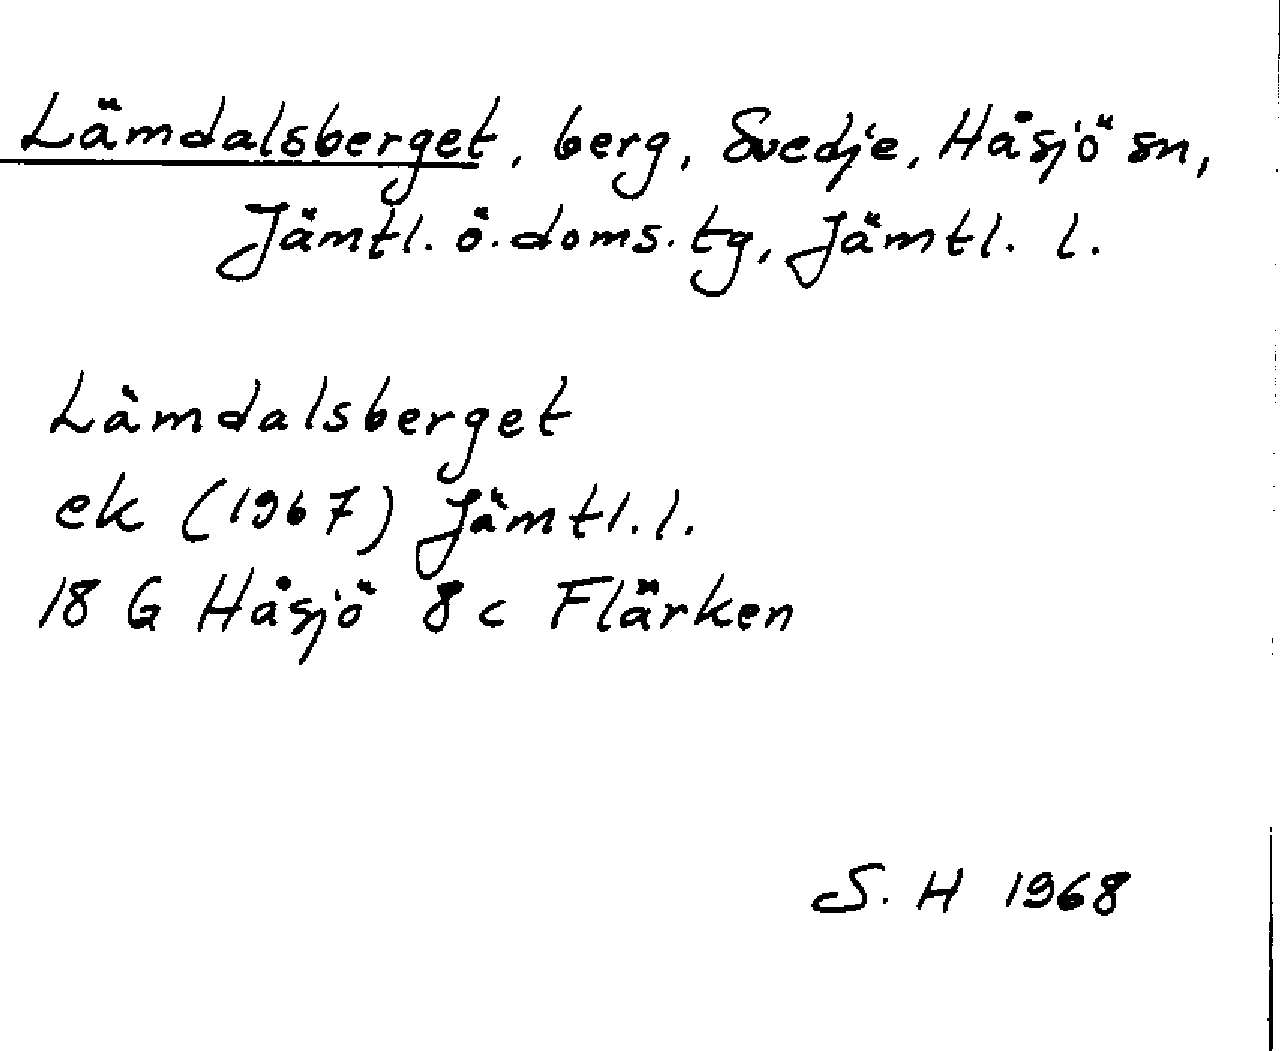 Lämdalsberget, berg, Svedje, Håsjö sn,
Jämtl. ö. doms. tg, Jämtl. l.
Lämdalsberget
ek (1967) Jämtl. l.
18 G Håsjö 8c Flärken
S. H 1968